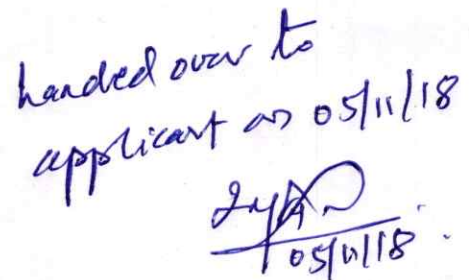 handed over to
applicant on 05/11/18
05/11/18.